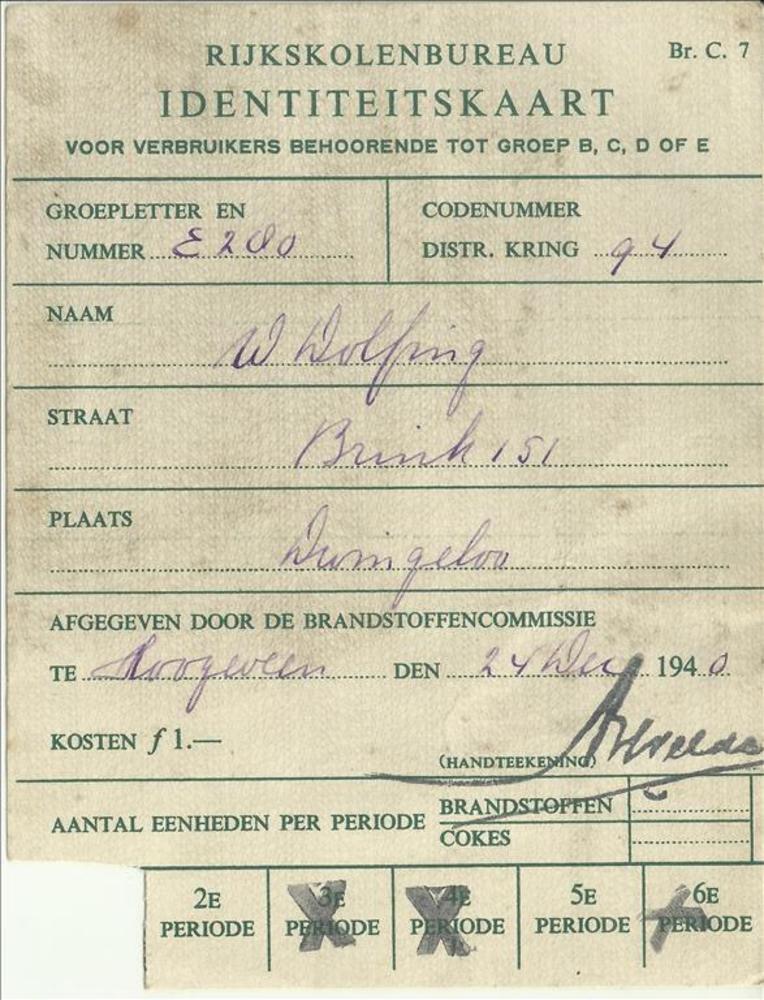 RIJKSKOLENBUREAU Br. C. 7
IDENTITEITSKAART
VOOR VERBRUIKERS BEHOORENDE TOT GROEP B, C, D OF E
GROEPLETTER EN
NUMMER E 200
CODENUMMER
DISTR. KRING 94
NAAM
W Wolfing
STRAAT
Brink 151
PLAATS
Dwingeloo
AFGEGEVEN DOOR DE BRANDSTOFFENCOMMISSIE
TE Hoogeveen DEN 24 Dec 1940
KOSTEN f 1.—
(HANDTEEKENING)
AANTAL EENHEDEN PER PERIODE
BRANDSTOFFEN
COKES
2E PERIODE
3E PERIODE
4E PERIODE
5E PERIODE
6E PERIODE